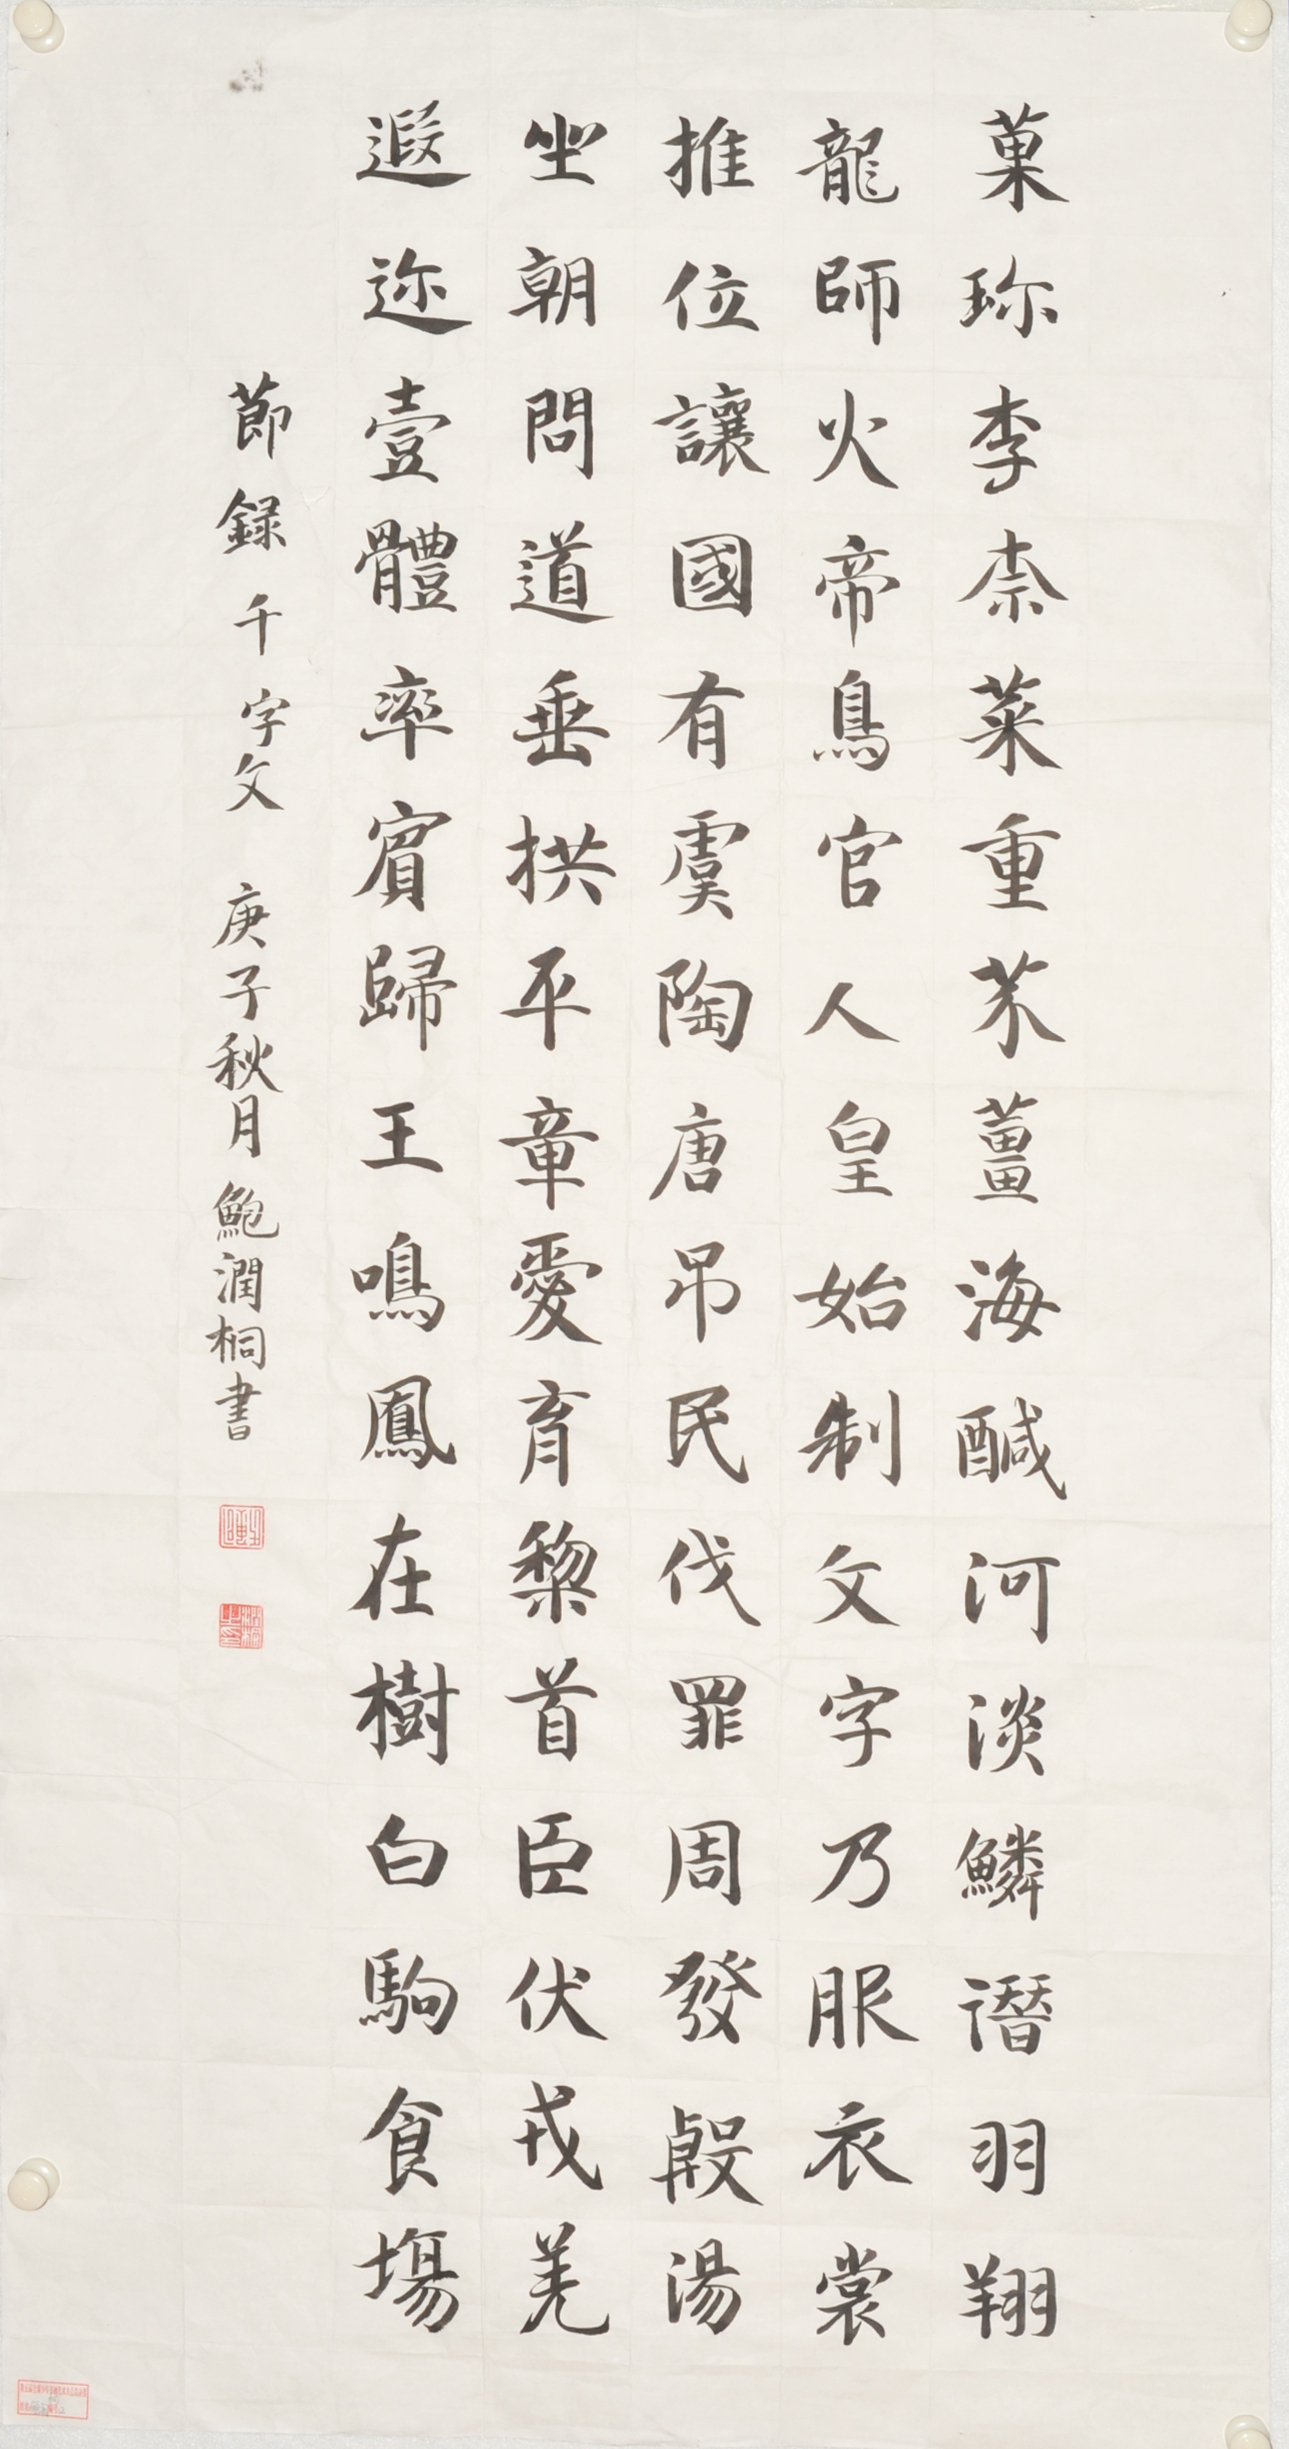 菓珎李柰菜重芥薑海醎河淡鱗潛羽翔
龍師火帝鳥官人皇始制文字乃服衣裳
推位讓國有虞陶唐吊民伐罪周發殷湯
坐朝問道垂拱平章愛育黎首臣伏戎羌
遐迩壹體率賓歸王鳴鳳在樹白駒食場
節錄千字文 庚子秋月鮑潤桐書